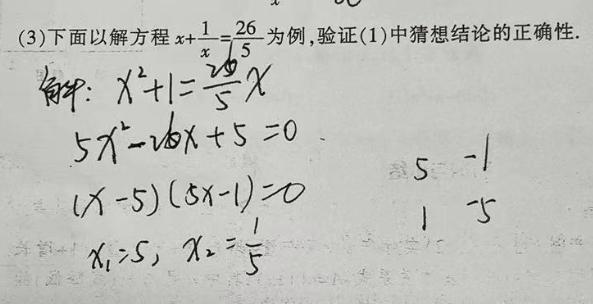 (3)下面以解方程 x+1/x=26/5 为例,验证(1)中猜想结论的正确性.
解: x²+1=26/5 x
5x²-26x+5=0
(x-5)(5x-1)=0
x₁=5, x₂=1/5
5 -1
1 -5